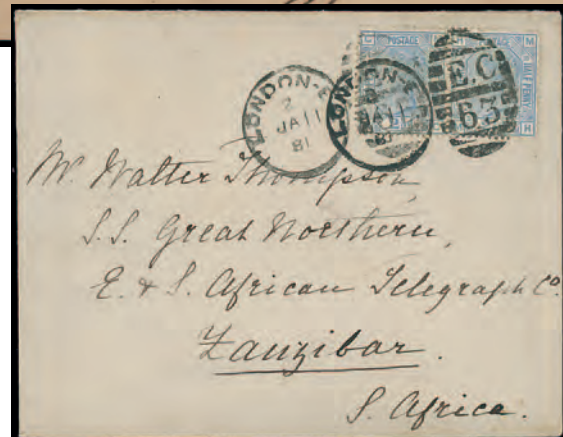 POSTAGE
HALF PENNY
M
H
LONDON-E
2
JA 11
81
LONDON-E
JA 11
81
E.C
63
Mr. Walter Thompson,
S.S. Great Northern,
E. & S. African Telegraph Co.
Zanzibar.
S. Africa.